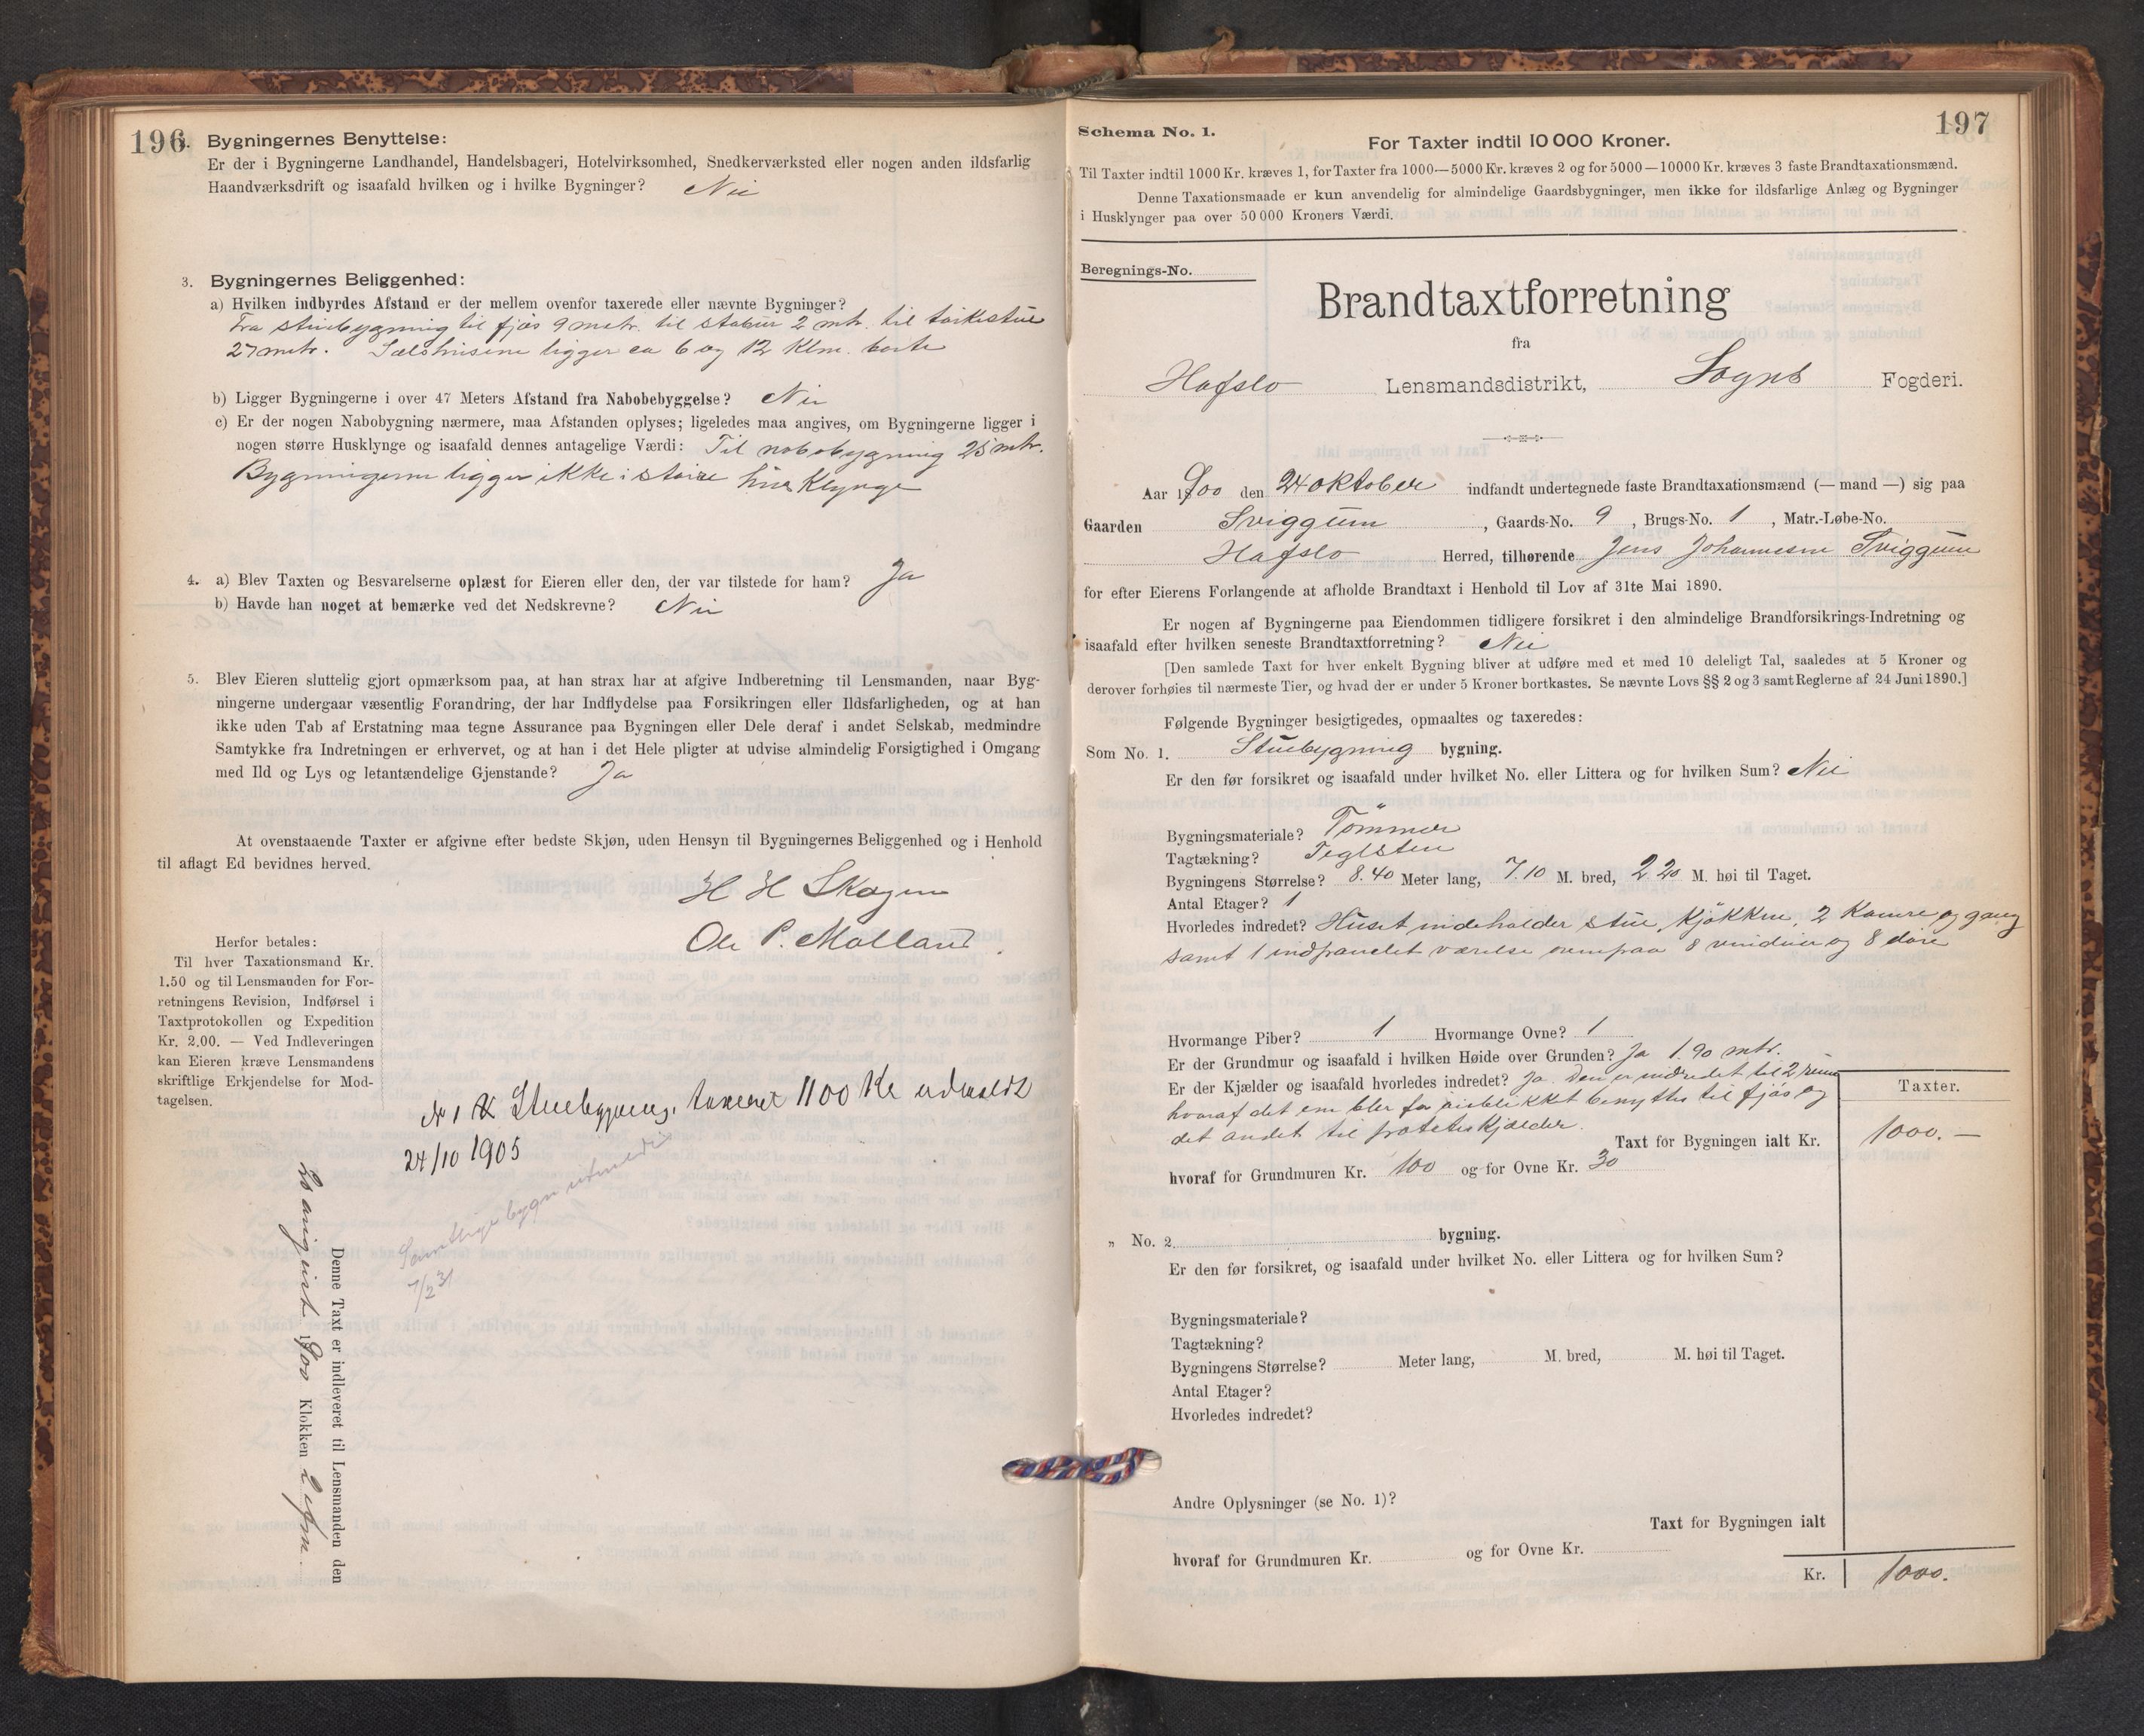 196
2. Bygningernes Benyttelse:
Er der i Bygningerne Landhandel, Handelsbageri, Hotelvirksomhed, Snedkerværksted eller nogen anden ildsfarlig
Haandværksdrift og isaafald hvilken og i hvilke Bygninger? Nei
3. Bygningernes Beliggenhed:
a) Hvilken indbyrdes Afstand er der mellem ovenfor taxerede eller nævnte Bygninger?
Fra stuebygning til fjøs 9 metr. til stabur 2 mtr. til torkestue
27 metr. Sælshusene ligger ca 6 og 12 Klm. borte
b) Ligger Bygningerne i over 47 Meters Afstand fra Nabobebyggelse? Nei
c) Er der nogen Nabobygning nærmere, maa Afstanden oplyses; ligeledes maa angives, om Bygningerne ligger i
nogen større Husklynge og isaafald dennes antagelige Værdi: Til nabobygning 25 mtr.
Bygningerne ligger ikke i større hus Klynge
4. a) Blev Taxten og Besvarelserne oplæst for Eieren eller den, der var tilstede for ham? Ja
b) Havde han noget at bemærke ved det Nedskrevne? Nei
5. Blev Eieren sluttelig gjort opmærksom paa, at han strax har at afgive Indberetning til Lensmanden, naar Byg-
ningerne undergaar væsentlig Forandring, der har Indflydelse paa Forsikringen eller Ildsfarligheden, og at han
ikke uden Tab af Erstatning maa tegne Assurance paa Bygningen eller Dele deraf i andet Selskab, medmindre
Samtykke fra Indretningen er erhvervet, og at han i det Hele pligter at udvise almindelig Forsigtighed i Omgang
med Ild og Lys og letantændelige Gjenstande? Ja
At ovenstaaende Taxter er afgivne efter bedste Skjøn, uden Hensyn til Bygningernes Beliggenhed og i Henhold
til aflagt Ed bevidnes herved.
H H Skagen
Ole P. Molland
Herfor betales:
Til hver Taxationsmand Kr.
1.50 og til Lensmanden for For-
retningens Revision, Indførsel i
Taxtprotokollen og Expedition
Kr. 2,00. — Ved Indleveringen
kan Eieren kræve Lensmandens
skriftlige Erkjendelse for Mod-
tagelsen.
No 1 Stuebygning, taxeret 1100 Kr udmeldt
24/10 1905
Samtlige bygn utmeldt
7/2 31
Denne Taxt er indleveret til Lensmanden den
1900 Klokken
197
Schema No. 1.
For Taxter indtil 10 000 Kroner.
Til Taxter indtil 1000 Kr. kræves 1, for Taxter fra 1000—5000 Kr. kræves 2 og for 5000—10000 Kr. kræves 3 faste Brandtaxationsmænd.
Denne Taxationsmaade er kun anvendelig for almindelige Gaardsbygninger, men ikke for ildsfarlige Anlæg og Bygninger
i Husklynger paa over 50 000 Kroners Værdi.
Beregnings-No.
Brandtaxtforretning
fra
Hafslo Lensmandsdistrikt, Sogns Fogderi.
Aar 1900 den 24 oktober indfandt undertegnede faste Brandtaxationsmænd (— mand —) sig paa
Gaarden Sviggum, Gaards-No. 9, Brugs-No. 1, Matr.-Løbe-No.
Hafslo Herred, tilhørende Jens Johannesen Sviggum
for efter Eierens Forlangende at afholde Brandtaxt i Henhold til Lov af 31te Mai 1890.
Er nogen af Bygningerne paa Eiendommen tidligere forsikret i den almindelige Brandforsikrings-Indretning og
isaafald efter hvilken seneste Brandtaxtforretning? Nei
[Den samlede Taxt for hver enkelt Bygning bliver at udføre med et med 10 deleligt Tal, saaledes at 5 Kroner og
derover forhøies til nærmeste Tier, og hvad der er under 5 Kroner bortkastes. Se nævnte Lovs §§ 2 og 3 samt Reglerne af 24 Juni 1890.]
Følgende Bygninger besigtigedes, opmaaltes og taxeredes:
Som No. 1. Stuebygning bygning.
Er den før forsikret og isaafald under hvilket No. eller Littera og for hvilken Sum? Nei
Bygningsmateriale? Tömmer
Tagtækning? Teglsten
Bygningens Størrelse? 8.40 Meter lang, 7.10 M. bred, 2.20 M. høi til Taget.
Antal Etager? 1
Hvorledes indredet? Huset indeholder stue, Kjökken, 2 Kamre og gang
samt 1 indpanelet værelse ovenpaa 8 vinduer og 8 döre
Hvormange Piber? 1 Hvormange Ovne? 1
Er der Grundmur og isaafald i hvilken Høide over Grunden? Ja 1.90 mtr.
Er der Kjælder og isaafald hvorledes indredet? Ja. Den er indredet til 2 rum
hvoraf det ene blev for öieblikket benyttes til fjös og
det andet til potetes Kjælder.
Taxter.
Taxt for Bygningen ialt Kr. 1000. —
hvoraf for Grundmuren Kr. 100 og for Ovne Kr. 30
„ No. 2. bygning.
Er den før forsikret, og isaafald under hvilket No. eller Littera og for hvilken Sum?
Bygningsmateriale?
Tagtækning?
Bygningens Størrelse? Meter lang, M. bred, M. høi til Taget.
Antal Etager?
Hvorledes indredet?
Andre Oplysninger (se No. 1)?
Taxt for Bygningen ialt
hvoraf for Grundmuren Kr. og for Ovne Kr.
Kr. 1000.